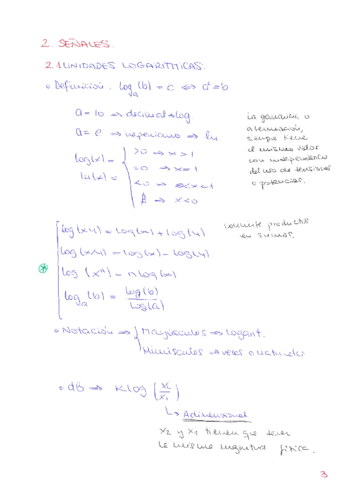 2. SEÑALES.
2.1 UNIDADES LOGARÍTMICAS.
• Definición: log_a (b) = c ⇔ a^c = b
a = 10 ⇒ decimal → log.
a = e ⇒ neperiano ⇒ ln
log(x) =
ln(x) =
>0 ⇒ x>1
=0 ⇒ x=1
<0 ⇒ x<1
∄ ⇒ x<0
La ganancia o
atenuación,
siempre tiene
el mismo valor
con independencia
del uso de tensiones
o potencias.
log(x·y) = log(x) + log(y)
log(x/y) = log(x) - log(y)
log (x^n) = n log(x)
log_a (b) = log(b) / log(a)
convierte productos
en sumas.
• Notación ⇒ Mayúsculas → logarit.
Minúsculas → veces o naturales
• dB ⇒ K log (x2/x1)
↳ Adimensional
x2 y x1 tienen que tener
la misma magnitud física.
3